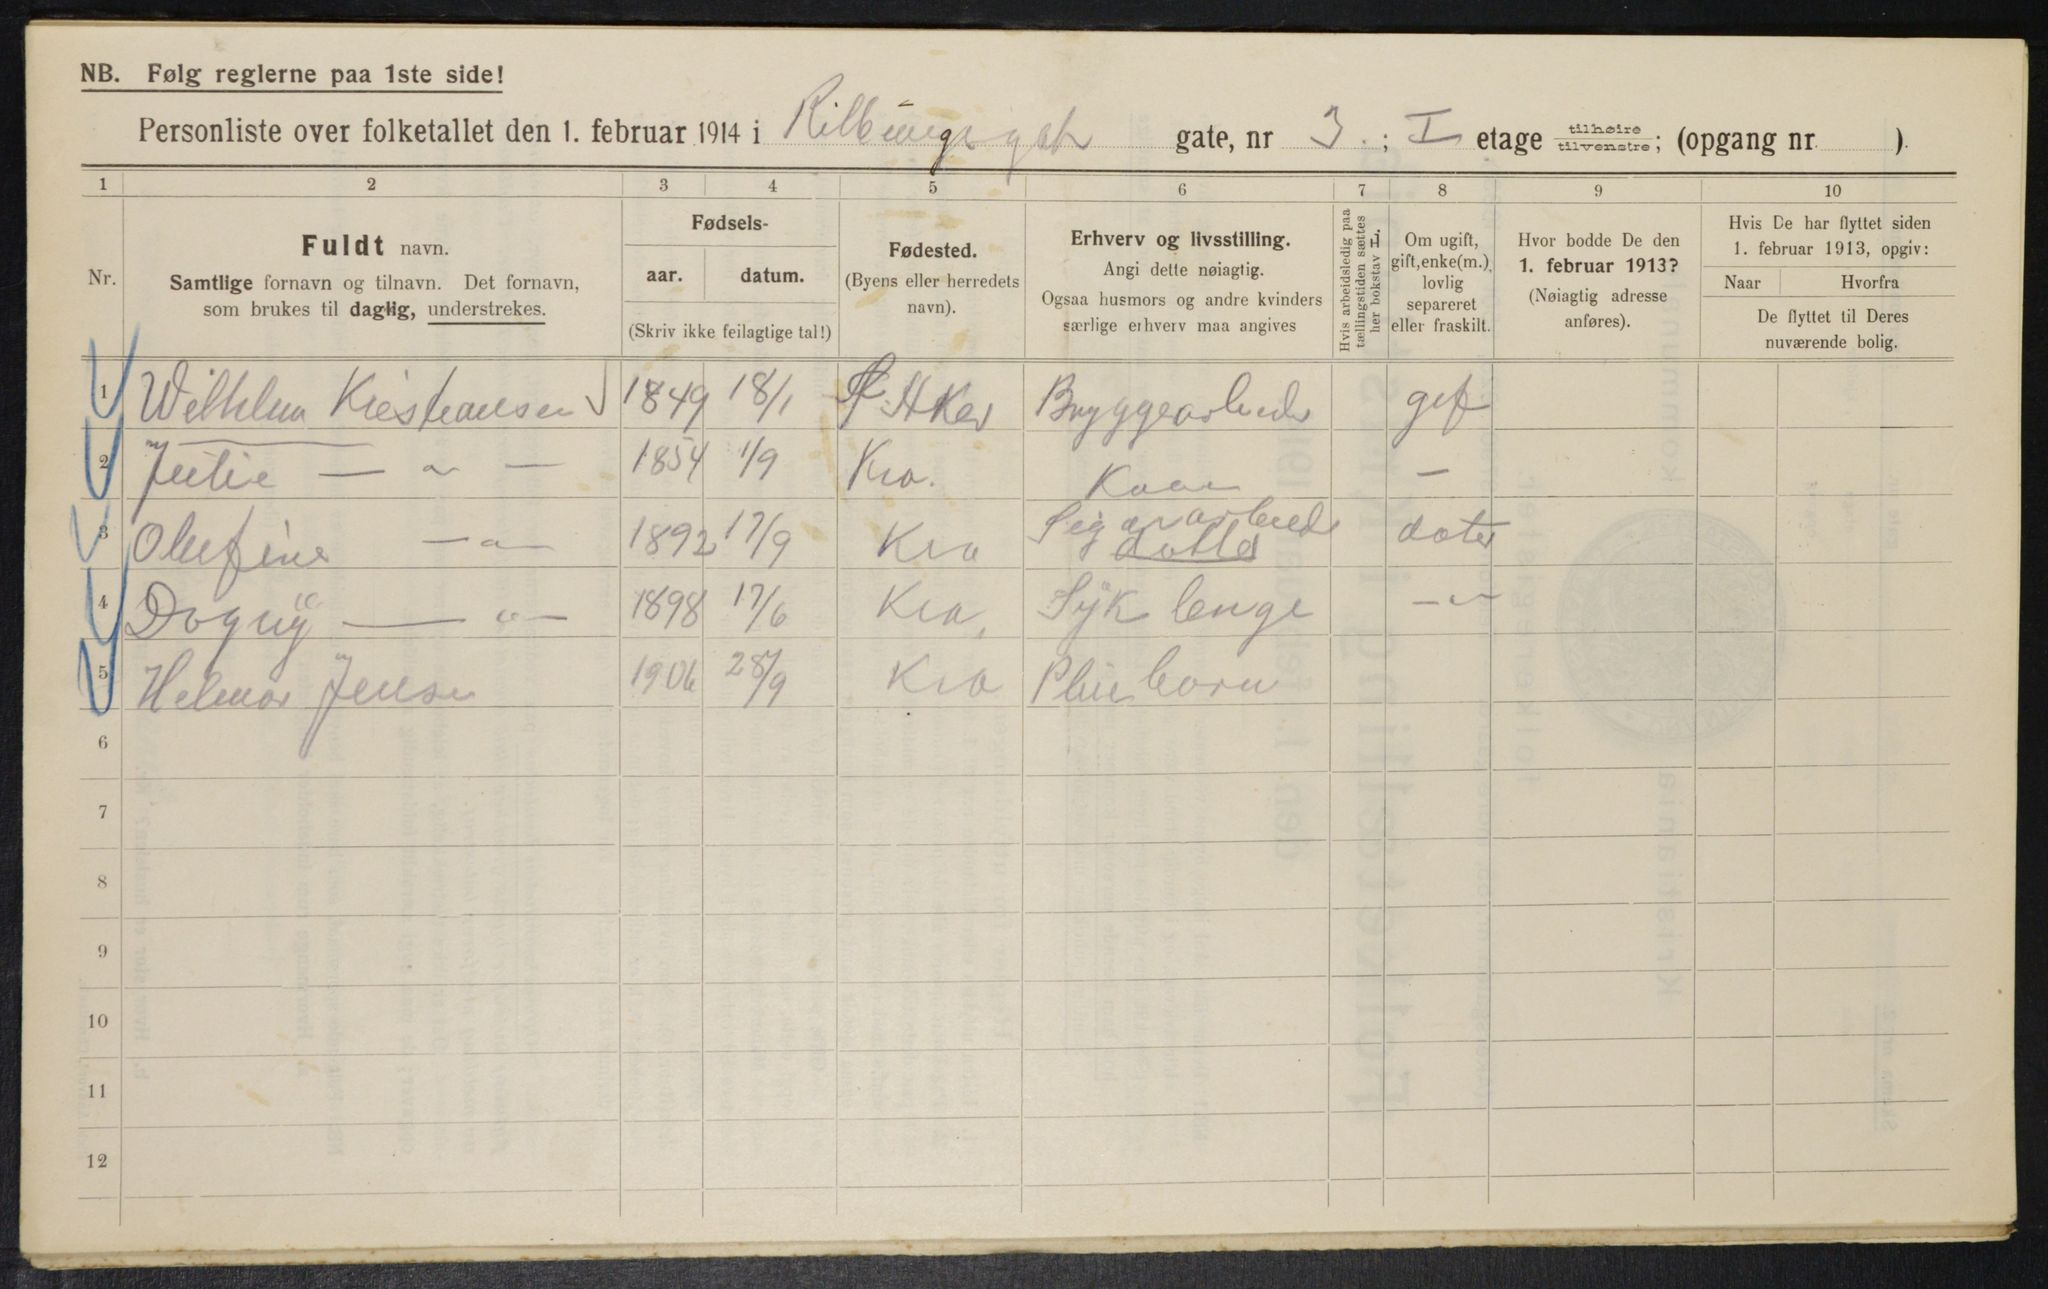 NB. Følg reglerne paa 1ste side!
Personliste over folketallet den 1. februar 1914 i gate, nr 3 ; I etage tilhøire tilvenstre; (opgang nr ).
1 2 3 4 5 6 7 8 9 10
Nr.
Fuldt navn.
Samtlige fornavn og tilnavn. Det fornavn,
som brukes til daglig, understrekes.
Fødsels-
aar. datum.
(Skriv ikke feilagtige tal!)
Fødested.
(Byens eller herredets
navn).
Erhverv og livsstilling.
Angi dette nøiagtig.
Ogsaa husmors og andre kvinders
særlige erhverv maa angives
Hvis arbeidsledig paa
tællingstiden sættes
her bokstav L.
Om ugift,
gift, enke(m.),
lovlig
separeret
eller fraskilt.
Hvor bodde De den
1. februar 1913?
(Nøiagtig adresse
anføres).
Hvis De har flyttet siden
1. februar 1913, opgiv:
Naar Hvorfra
De flyttet til Deres
nuværende bolig.
1 Kristiansen 1849 18/1 Aker Bryggearbeider gift
2 Julie — „ — 1854 1/9 Kra. Kone —
3 Olufine — „ — 1892 17/9 Kra Sigararbeider datter dater
4 Dagny — „ — 1898 17/6 Kra. — „ —
5 Helmer Jensen 1906 28/9 Kra Pleiebarn
6
7
8
9
10
11
12